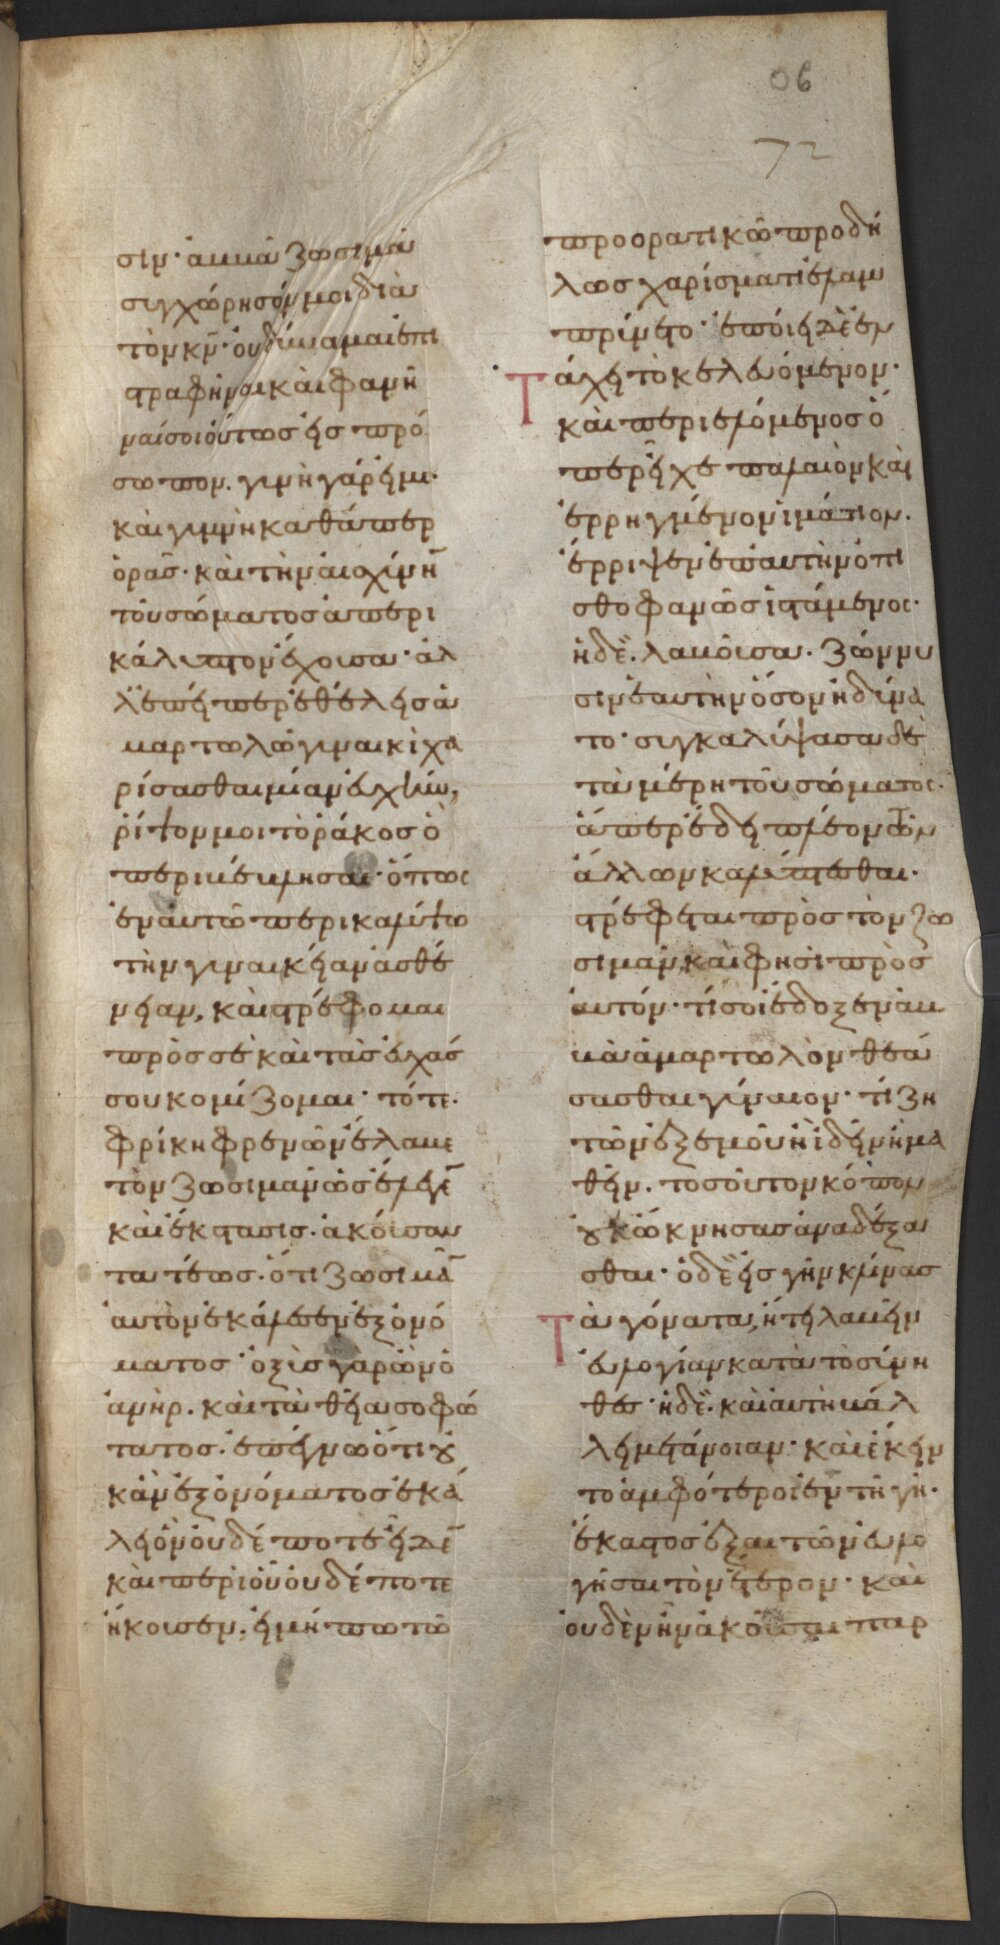 06
72
σιν· ἀββᾶ ζωσιμᾶ
συγχώρησόν μοι διὰ
τὸν κν· οὐ δύναμαι ἐπι
στραφῆναι καὶ φανῆ
ναί σοι οὕτως εἰς πρό
σωπον. γυνὴ γάρ εἰμι·
καὶ γυμνὴ καθάπερ
ὁρᾶς· καὶ τὴν αἰσχύνη
τοῦ σώματος ἀπερι
κάλυπτον ἔχουσα· ἀλ
λ' ἐπείπερ ἐθέλεισ ἁ
μαρτωλῶ γυναικὶ χα
ρίσασθαι μίαν εὐχὴν,
ρίψον μοι τὸ ράκος ὃ
περιβέβλησαι· ὅπως
ἐν αὐτῶ περικαλύψω
τὴν γυναικείαν ἀσθέ
νειαν, καὶ στρέφομαι
πρὸς σὲ καὶ τὰς εὐχάς
σου κομίζομαι· τότε·
φρίκη φρενῶν ἔλαβε
τὸν ζωσιμᾶν ὡς ἔλεγε
καὶ ἔκστασις· ἀκούσαν
τα τέως· ὅτι ζωσιμᾶ
αὐτὸν ἐκάλεσεν ἐξ ὀνό
ματος· ὀξὺς γὰρ ὢν ὁ
ἀνὴρ. καὶ τὰ θεῖα σοφώ
τατος· ἐπέγνω ὅτι οὐ
κἂν ἐξ ὀνόματος ἐκά
λει ὃν οὐδέ ποτε εἶδε
καὶ περὶ οὗ οὐδέ ποτε
ἤκουσεν· εἰ μή πω τῶ
προορατικῶ προδή
λως χαρίσματι ἐλαμ
πρύνετο· ἐποίει δὲ ἐν
τάχει τὸ κελευόμενον·
καὶ περιελόμενος ὃ
περ εἶχε παλαιὸν καὶ
ἐρρηγμένον ἱμάτιον·
ἔρριψεν ἐπ' αὐτὴν ὀπι
σθοφανῶς ἱστάμενος·
ἡ δὲ. λαβοῦσα· ζώννυ
σιν ἑαυτὴν ὅσον ἠδύνα
το· συγκαλύψασα δὲ
τὰ μέρη τοῦ σώματος·
ἅπερ ἔδει πλέον τῶν
ἄλλων καλύπτεσθαι·
στρέφεται πρὸς τὸν ζω
σιμᾶν, καὶ φησὶ πρὸς
αὐτόν· τί σοι ἔδοξεν ἀβ
βᾶ ἁμαρτωλὸν θεά
σασθαι γύναιον· τί ζη
τῶν ἐξ ἐμοῦ ἢ ἰδεῖν ἢ μα
θεῖν· τοσοῦτον κόπον
οὐκ ὤκνησας ἀναδέξα
σθαι· ὁ δὲ εἰς γῆν κλίνας
τὰ γόνατα, ἤτει λαβεῖν
εὐλογίαν κατὰ τὸ σύνη
θες· ἡ δὲ. καὶ αὐτὴ βάλ
λει μετάνοιαν· καὶ ἔκειν
το ἀμφότεροι ἐν τῆ γῆ·
ἕκαστος ἐξαιτῶν εὐλο
γῆσαι τὸν ἕτερον· καὶ
οὐδὲν ἦν ἀκοῦσαι παρ